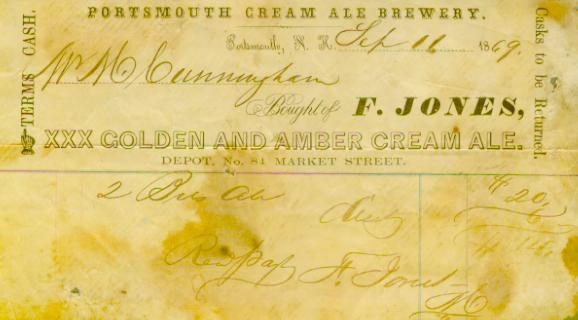 PORTSMOUTH CREAM ALE BREWERY.
Portsmouth, N. H. Sep 11 1869.
TERMS CASH.
Casks to be Returned.
Wm M Cunningham
Bought of F. JONES,
XXX GOLDEN AND AMBER CREAM ALE.
DEPOT, No. 84 MARKET STREET.
2 Bbls Ale $ 20.
6
$ 14
Recd Pay F. Jones